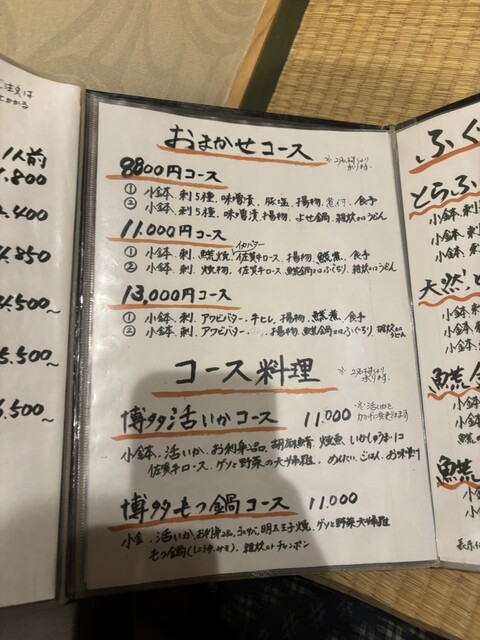 ご注文は
1人前
1.800
2.400
4.850
4.500~
5.500~
6.500~
おまかせコース
※2名様より
承ります。
8800円コース
① 小鉢、刺5種、味噌漬、豚塩、揚物、煮付、食事
② 小鉢、刺5種、味噌漬、揚物、よせ鍋、雑炊orうどん
11.000円コース
イカバター
① 小鉢、刺、鯱焼、佐賀牛ロース、揚物、食事
② 小鉢、刺、焼物、佐賀牛ロース、ふぐちり、雑炊orうどん
13,000円コース
① 小鉢、刺、アワビバター、牛ヒレ、揚物、食事
② 小鉢、刺、アワビバター、揚物、ふぐちり、雑炊orうどん
コース料理
※2名様より
承ります。
博多活いかコース 11.000
※活いかを
小鉢、活いか、お刺身2品、胡麻鯖、焼魚、いかしゅうまい
佐賀牛ロース、ゲソと野菜の天婦羅、めんたい、ごはん、お味噌汁
博多もつ鍋コース 11.000
小鉢、活いか、お刺身、明太玉子焼、ゲソと野菜天婦羅
もつ鍋(しょうゆ、みそ)、雑炊orチャンポン
ふぐ
とらふ
小鉢、刺
小鉢、刺
天然と
小鉢
小鉢
小鉢
小鉢
小鉢